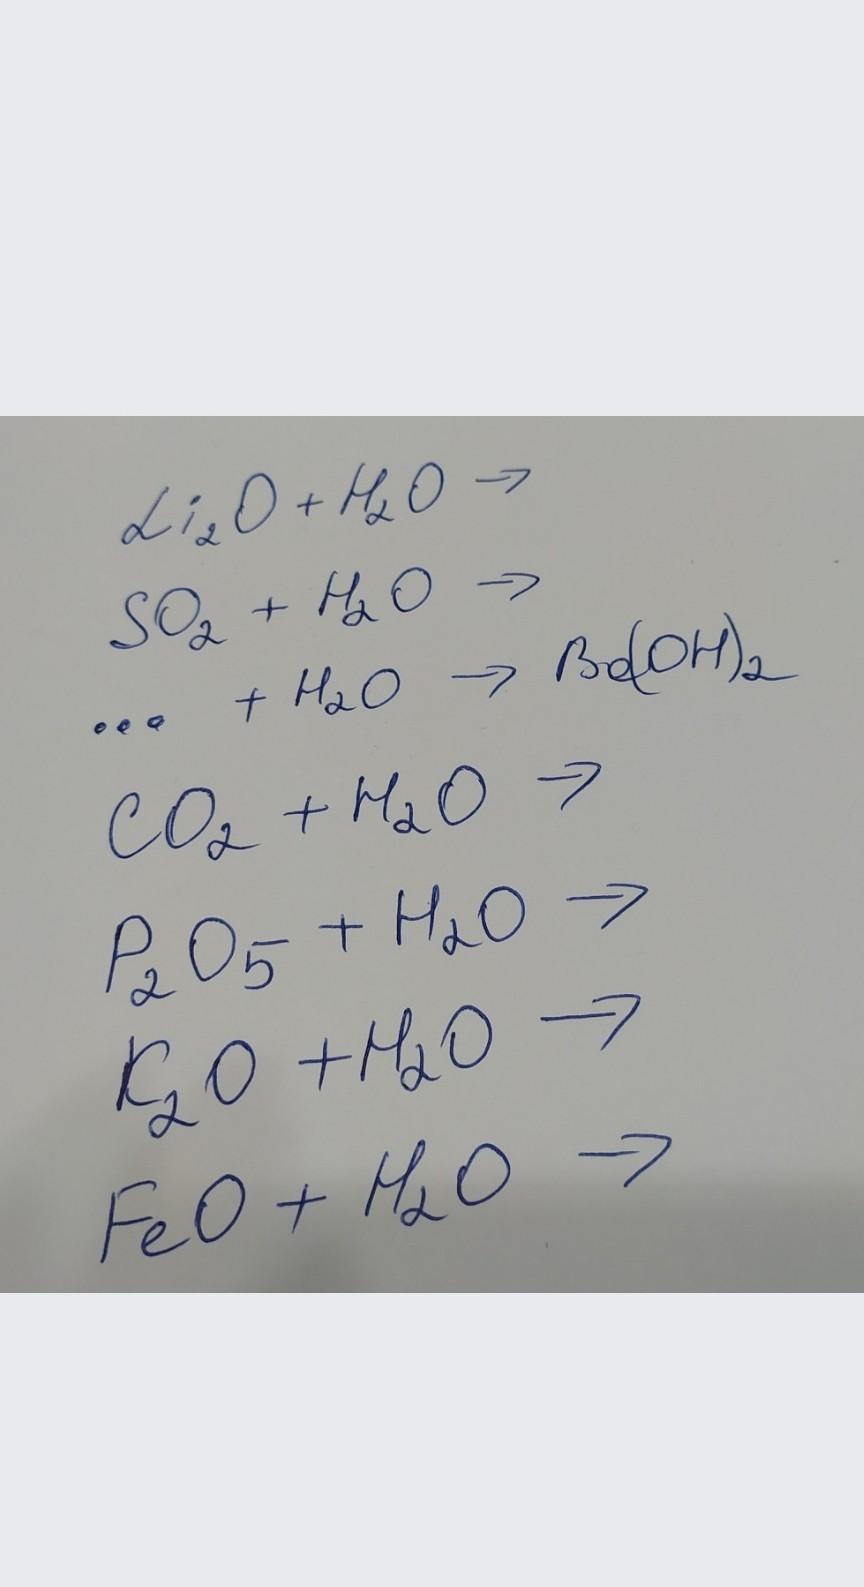 Li₂O + H₂O →
SO₂ + H₂O →
... + H₂O → Ba(OH)₂
CO₂ + H₂O →
P₂O₅ + H₂O →
K₂O + H₂O →
FeO + H₂O →